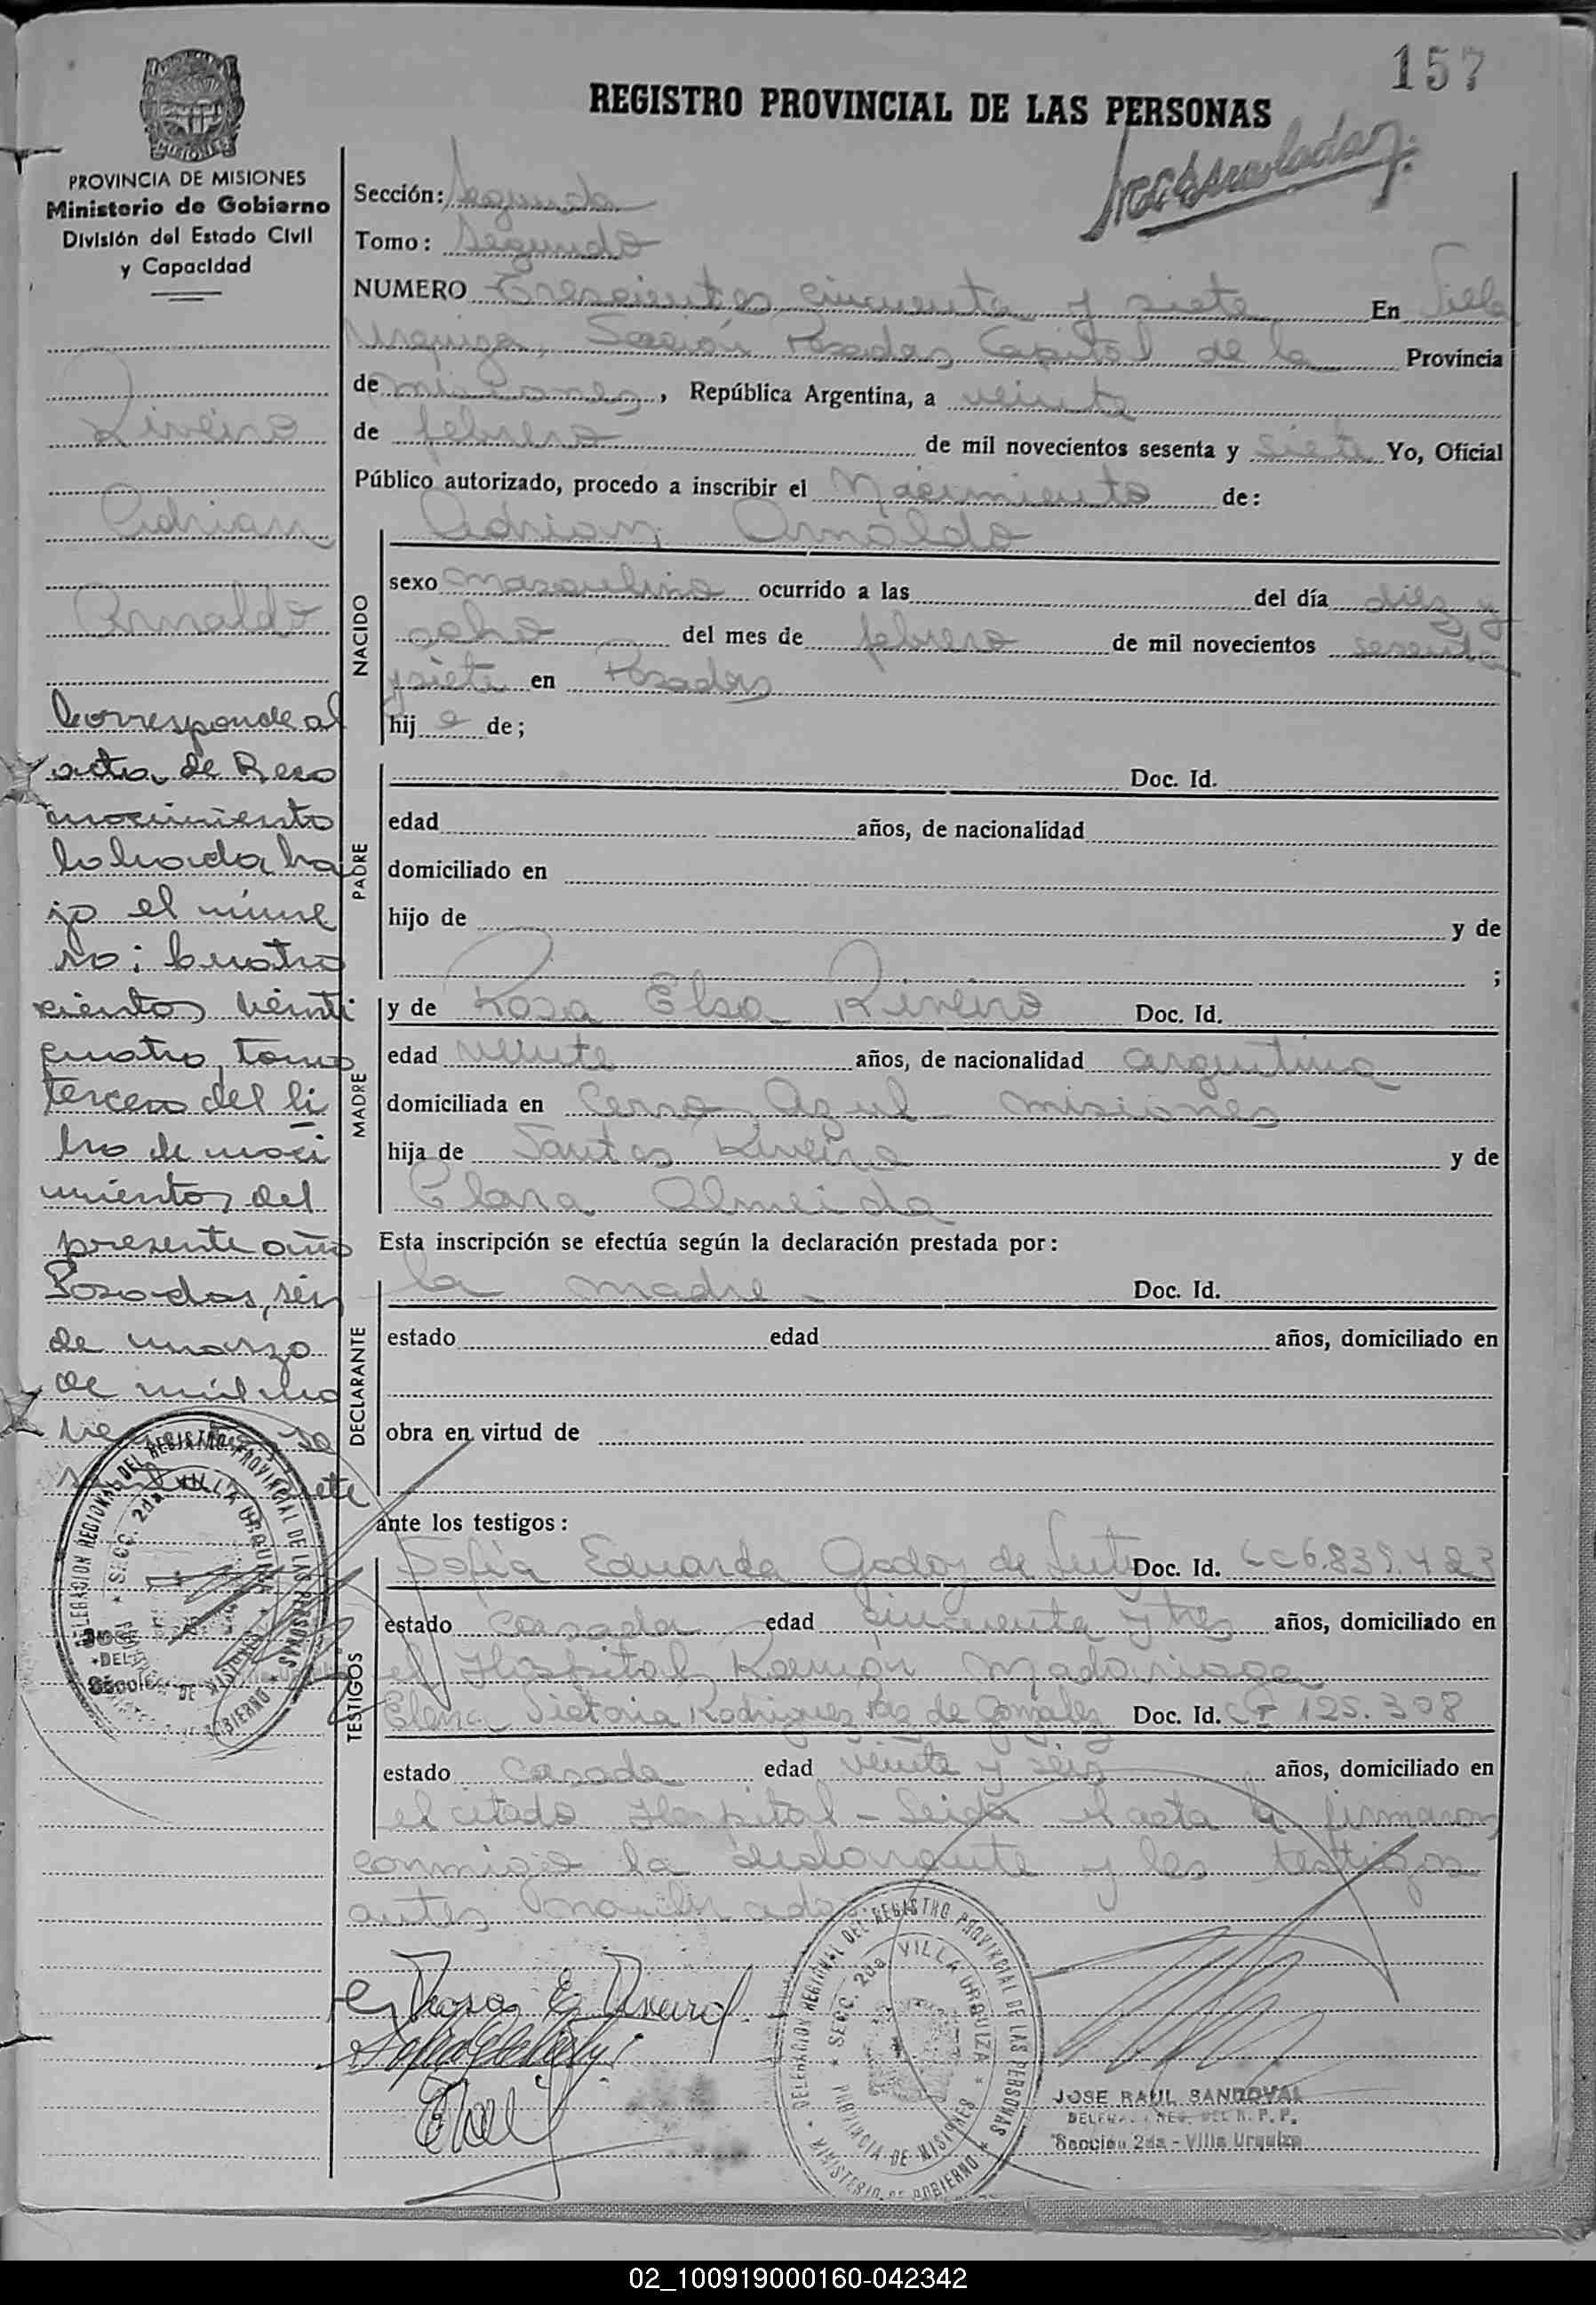 157
REGISTRO PROVINCIAL DE LAS PERSONAS
MISIONES
PROVINCIA DE MISIONES
Ministerio de Gobierno
División del Estado Civil
y Capacidad
Sección: Segunda
Tomo: Segundo
NUMERO Trescientos cincuenta y siete En Villa
Urquiza, Sección Posadas Capital de la Provincia
de Misiones, República Argentina, a veinte
de febrero de mil novecientos sesenta y siete Yo, Oficial
Público autorizado, procedo a inscribir el Nacimiento de:
Riveiro
Adrian
Arnaldo
NACIDO
Adrian Arnaldo
sexo masculino ocurrido a las del día diez y
ocho del mes de febrero de mil novecientos sesenta
y siete en Posadas
hij o de;
PADRE
Doc. Id.
edad años, de nacionalidad
domiciliado en
hijo de y de
;
MADRE
y de Rosa Elsa Riveiro Doc. Id.
edad veinte años, de nacionalidad argentina
domiciliada en Cerro Azul - Misiones
hija de Santos Riveiro y de
Clara Almeida
Esta inscripción se efectúa según la declaración prestada por:
DECLARANTE
la madre - Doc. Id.
estado edad años, domiciliado en
obra en virtud de
ante los testigos:
TESTIGOS
Sofia Eduarda Godoy de Doc. Id. LC 6.839.423
estado casada edad cincuenta y tres años, domiciliado en
el Hospital Ramón Madariaga
Elena Victoria Rodriguez de Gonzalez Doc. Id. 125.308
estado casada edad veinte y seis años, domiciliado en
el citado Hospital - Leida el acta la firmaron
conmigo la declarante y los testigos
antes
Corresponde al
acta de Reco
nocimiento
labrada ba
jo el núme
ro: cuatro
cientos veinti
cuatro, tomo
tercero del li
bro de naci
mientos del
presente año
Posadas, seis
de marzo
de mil no
vecientos se
senta y siete
DELEGACION REGIONAL DEL REGISTRO PROVINCIAL DE LAS PERSONAS
SECC. 2da VILLA URQUIZA
PROVINCIA DE MISIONES
MINISTERIO DE GOBIERNO
Rosa E Riveiro
DELEGACION REGIONAL DEL REGISTRO PROVINCIAL DE LAS PERSONAS
SECC. 2da VILLA URQUIZA
PROVINCIA DE MISIONES
MINISTERIO DE GOBIERNO
JOSE RAUL SANDOVAL
DELEG. REG. DEL R. P. P.
Sección 2da - Villa Urquiza
02_100919000160-042342